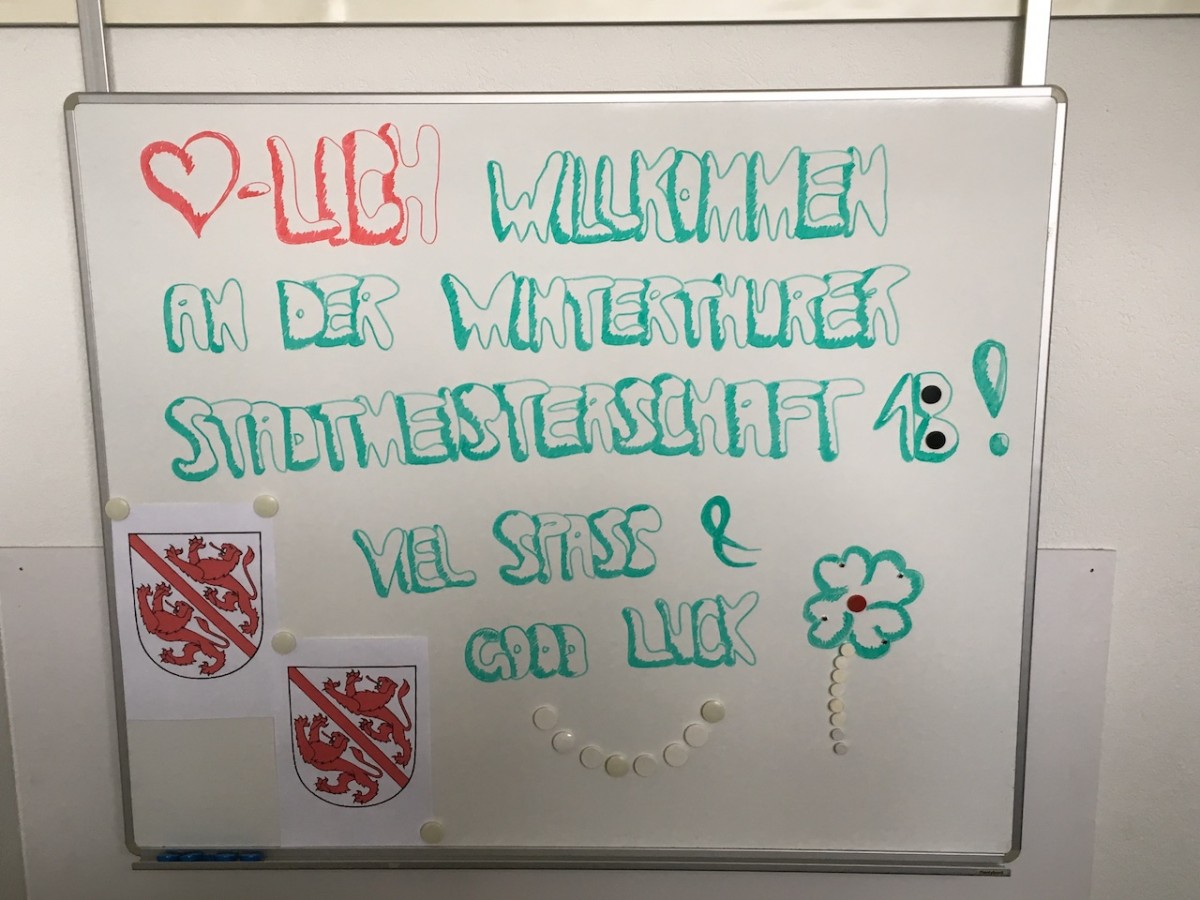 ♥-LICH WILLKOMMEN
AN DER WINTERTHURER
STADTMEISTERSCHAFT 18!
VIEL SPASS &
GOOD LUCK